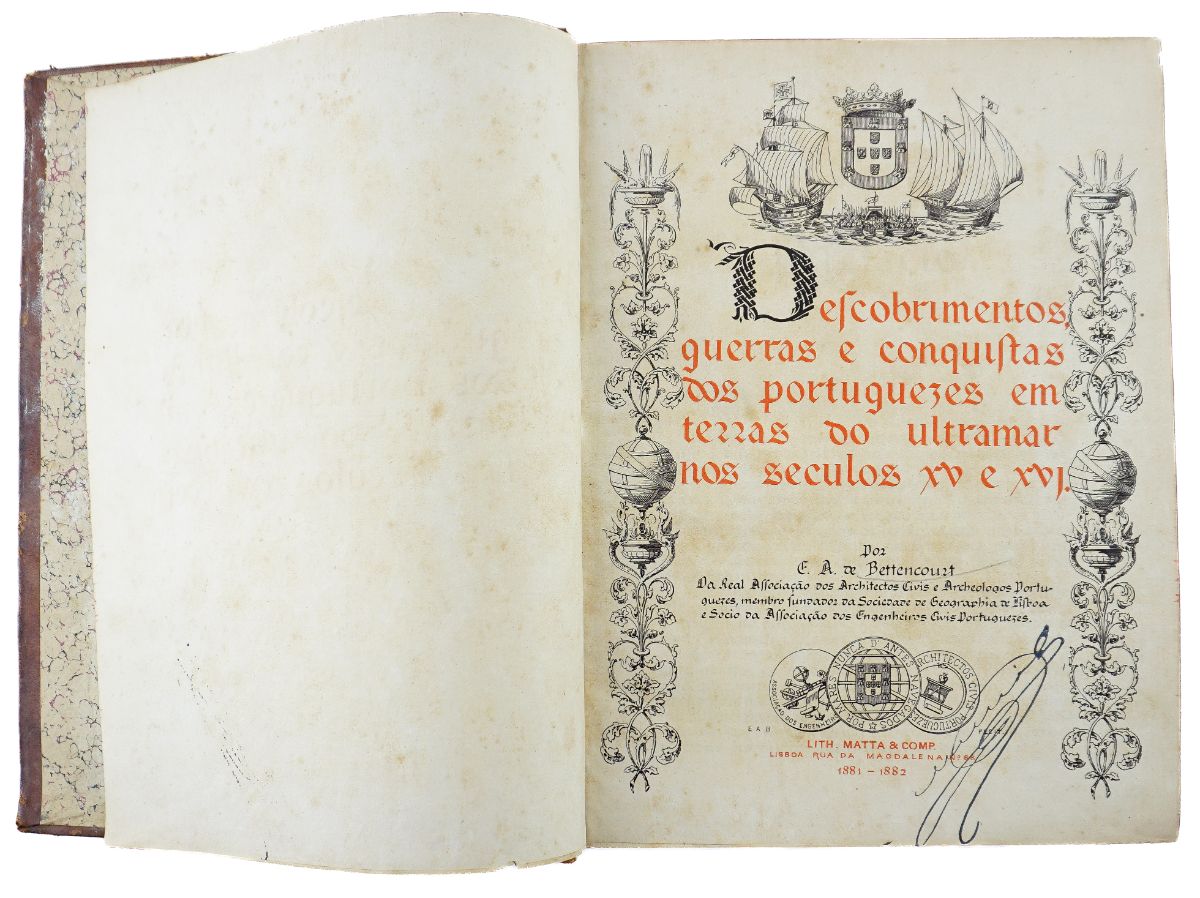 Descobrimentos,
guerras e conquistas
dos portuguezes em
terras do ultramar
nos seculos XV e XVI.
Por
E. A. de Bettencourt
Da Real Associação dos Architectos Civis e Archeologos Portu-
guezes, membro fundador da Sociedade de Geographia de Lisboa
e Socio da Associação dos Engenheiros Civis Portuguezes.
ASSOCIAÇÃO DOS ENGENHEIROS
POR MARES NUNCA D'ANTES NAVEGADOS
ARCHITECTOS CIVIS PORTUGUEZES
E A B
LITH. MATTA & COMP.
LISBOA RUA DA MAGDALENA Nº 65
1881 – 1882